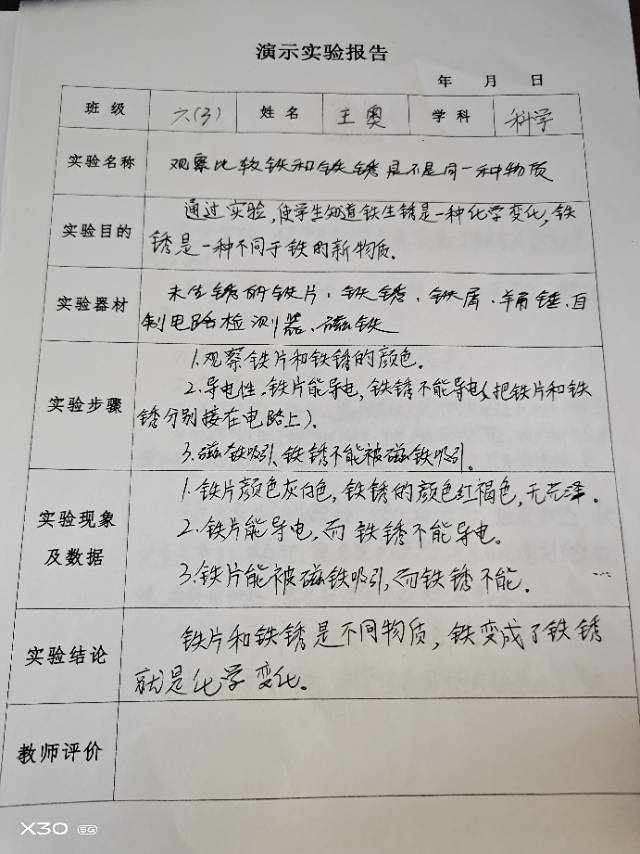 演示实验报告
年 月 日
班级 六(3) 姓名 王奥 学科 科学
实验名称 观察比较铁和铁锈是不是同一种物质
实验目的 通过实验,使学生知道铁生锈是一种化学变化,铁
锈是一种不同于铁的新物质.
实验器材 未生锈的铁片、铁锈、铁屑、羊角锤、自
制电路检测器、磁铁
实验步骤 1.观察铁片和铁锈的颜色.
2.导电性.铁片能导电,铁锈不能导电(把铁片和铁
锈分别接在电路上).
3.磁铁吸引.铁锈不能被磁铁吸引.
实验现象及数据 1.铁片颜色灰白色,铁锈的颜色红褐色,无光泽.
2.铁片能导电,而铁锈不能导电.
3.铁片能被磁铁吸引,而铁锈不能.
实验结论 铁片和铁锈是不同物质,铁变成了铁锈
就是化学变化.
教师评价
X30 5G